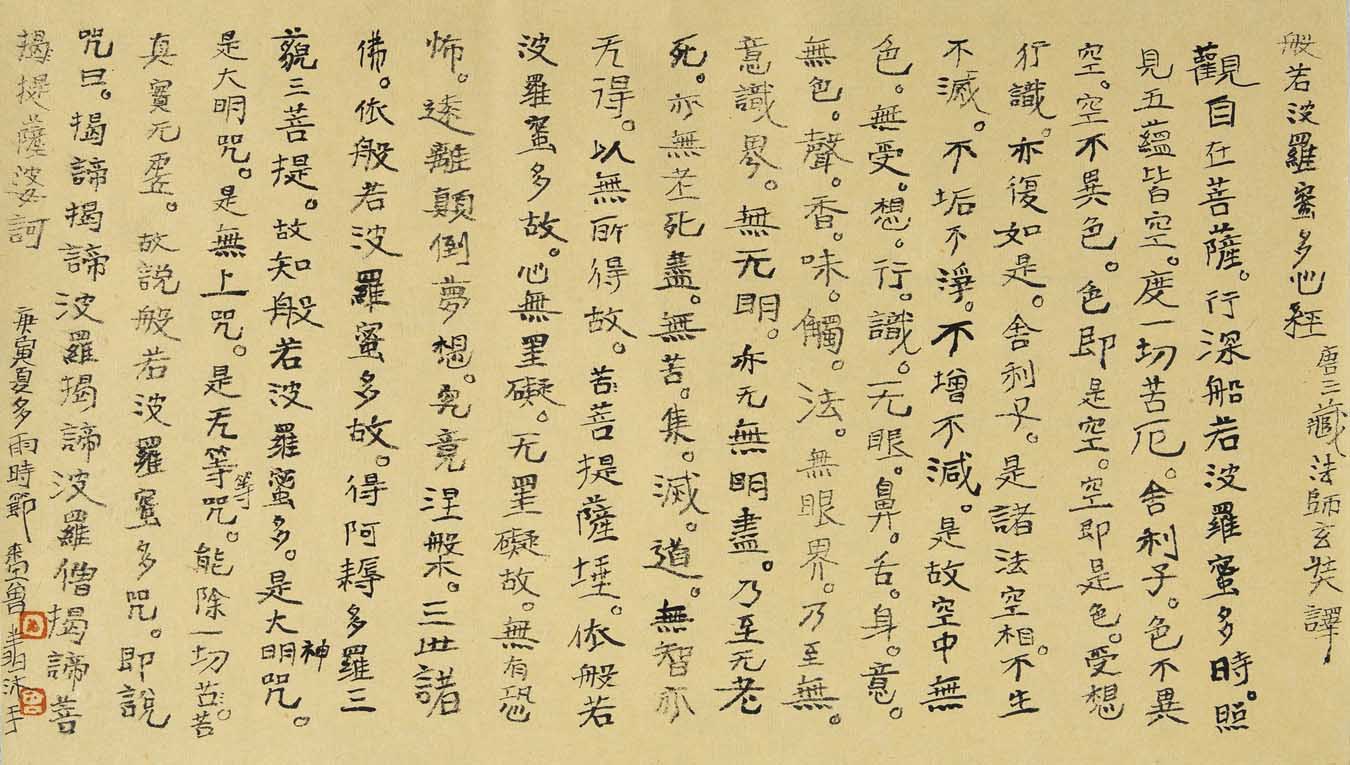 般若波羅蜜多心経 唐三藏法師玄奘譯
觀自在菩薩。行深船若波羅蜜多時。照
見五蘊皆空。度一切苦厄。舍利子。色不異
空。空不異色。色即是空。空即是色。受想
行識。亦復如是。舍利子。是諸法空相。不生
不滅。不垢不淨。不增不減。是故空中無
色。無受。想。行。識。无眼。鼻。舌。身。意。
無色。聲。香。味。觸。法。無眼界。乃至無。
意識界。無无明。亦无無明盡。乃至无老
死。亦無老死盡。無苦。集。滅。道。無智亦
无得。以無所得故。苦菩提薩埵。依般若
波羅蜜多故。心無罣礙。无罣礙故。無有恐
怖。逺離顛倒夢想。究竟涅槃。三世諸
佛。依般若波羅蜜多故。得阿耨多羅三
藐三菩提。故知般若波羅蜜多。是大神明咒。
是大明咒。是無上咒。是无等等咒。能除一切苦苦。
真實无虛。故說般若波羅蜜多咒。即說
咒曰。揭諦揭諦波羅揭諦波羅僧揭諦菩
揭提薩婆訶 庚寅夏多雨時節 沐手